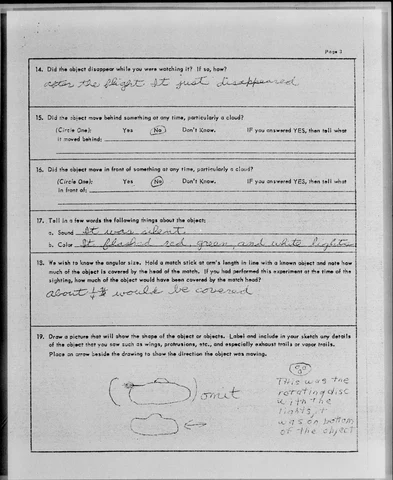 Page 3
14. Did the object disappear while you were watching it? If so, how?
after the flight It just disappeared
15. Did the object move behind something at any time, particularly a cloud?
(Circle One): Yes No Don't Know. IF you answered YES, then tell what
it moved behind:
16. Did the object move in front of something at any time, particularly a cloud?
(Circle One): Yes No Don't Know. IF you answered YES, then tell what
in front of:
17. Tell in a few words the following things about the object:
a. Sound It was silent.
b. Color It flashed red, green, and white lights
18. We wish to know the angular size. Hold a match stick at arm's length in line with a known object and note how
much of the object is covered by the head of the match. If you had performed this experiment at the time of the
sighting, how much of the object would have been covered by the match head?
about would be covered
19. Draw a picture that will show the shape of the object or objects. Label and include in your sketch any details
of the object that you saw such as wings, protrusions, etc., and especially exhaust trails or vapor trails.
Place an arrow beside the drawing to show the direction the object was moving.
omit
This was the
rotating disc
with the
lights, it
was on bottom
of the object